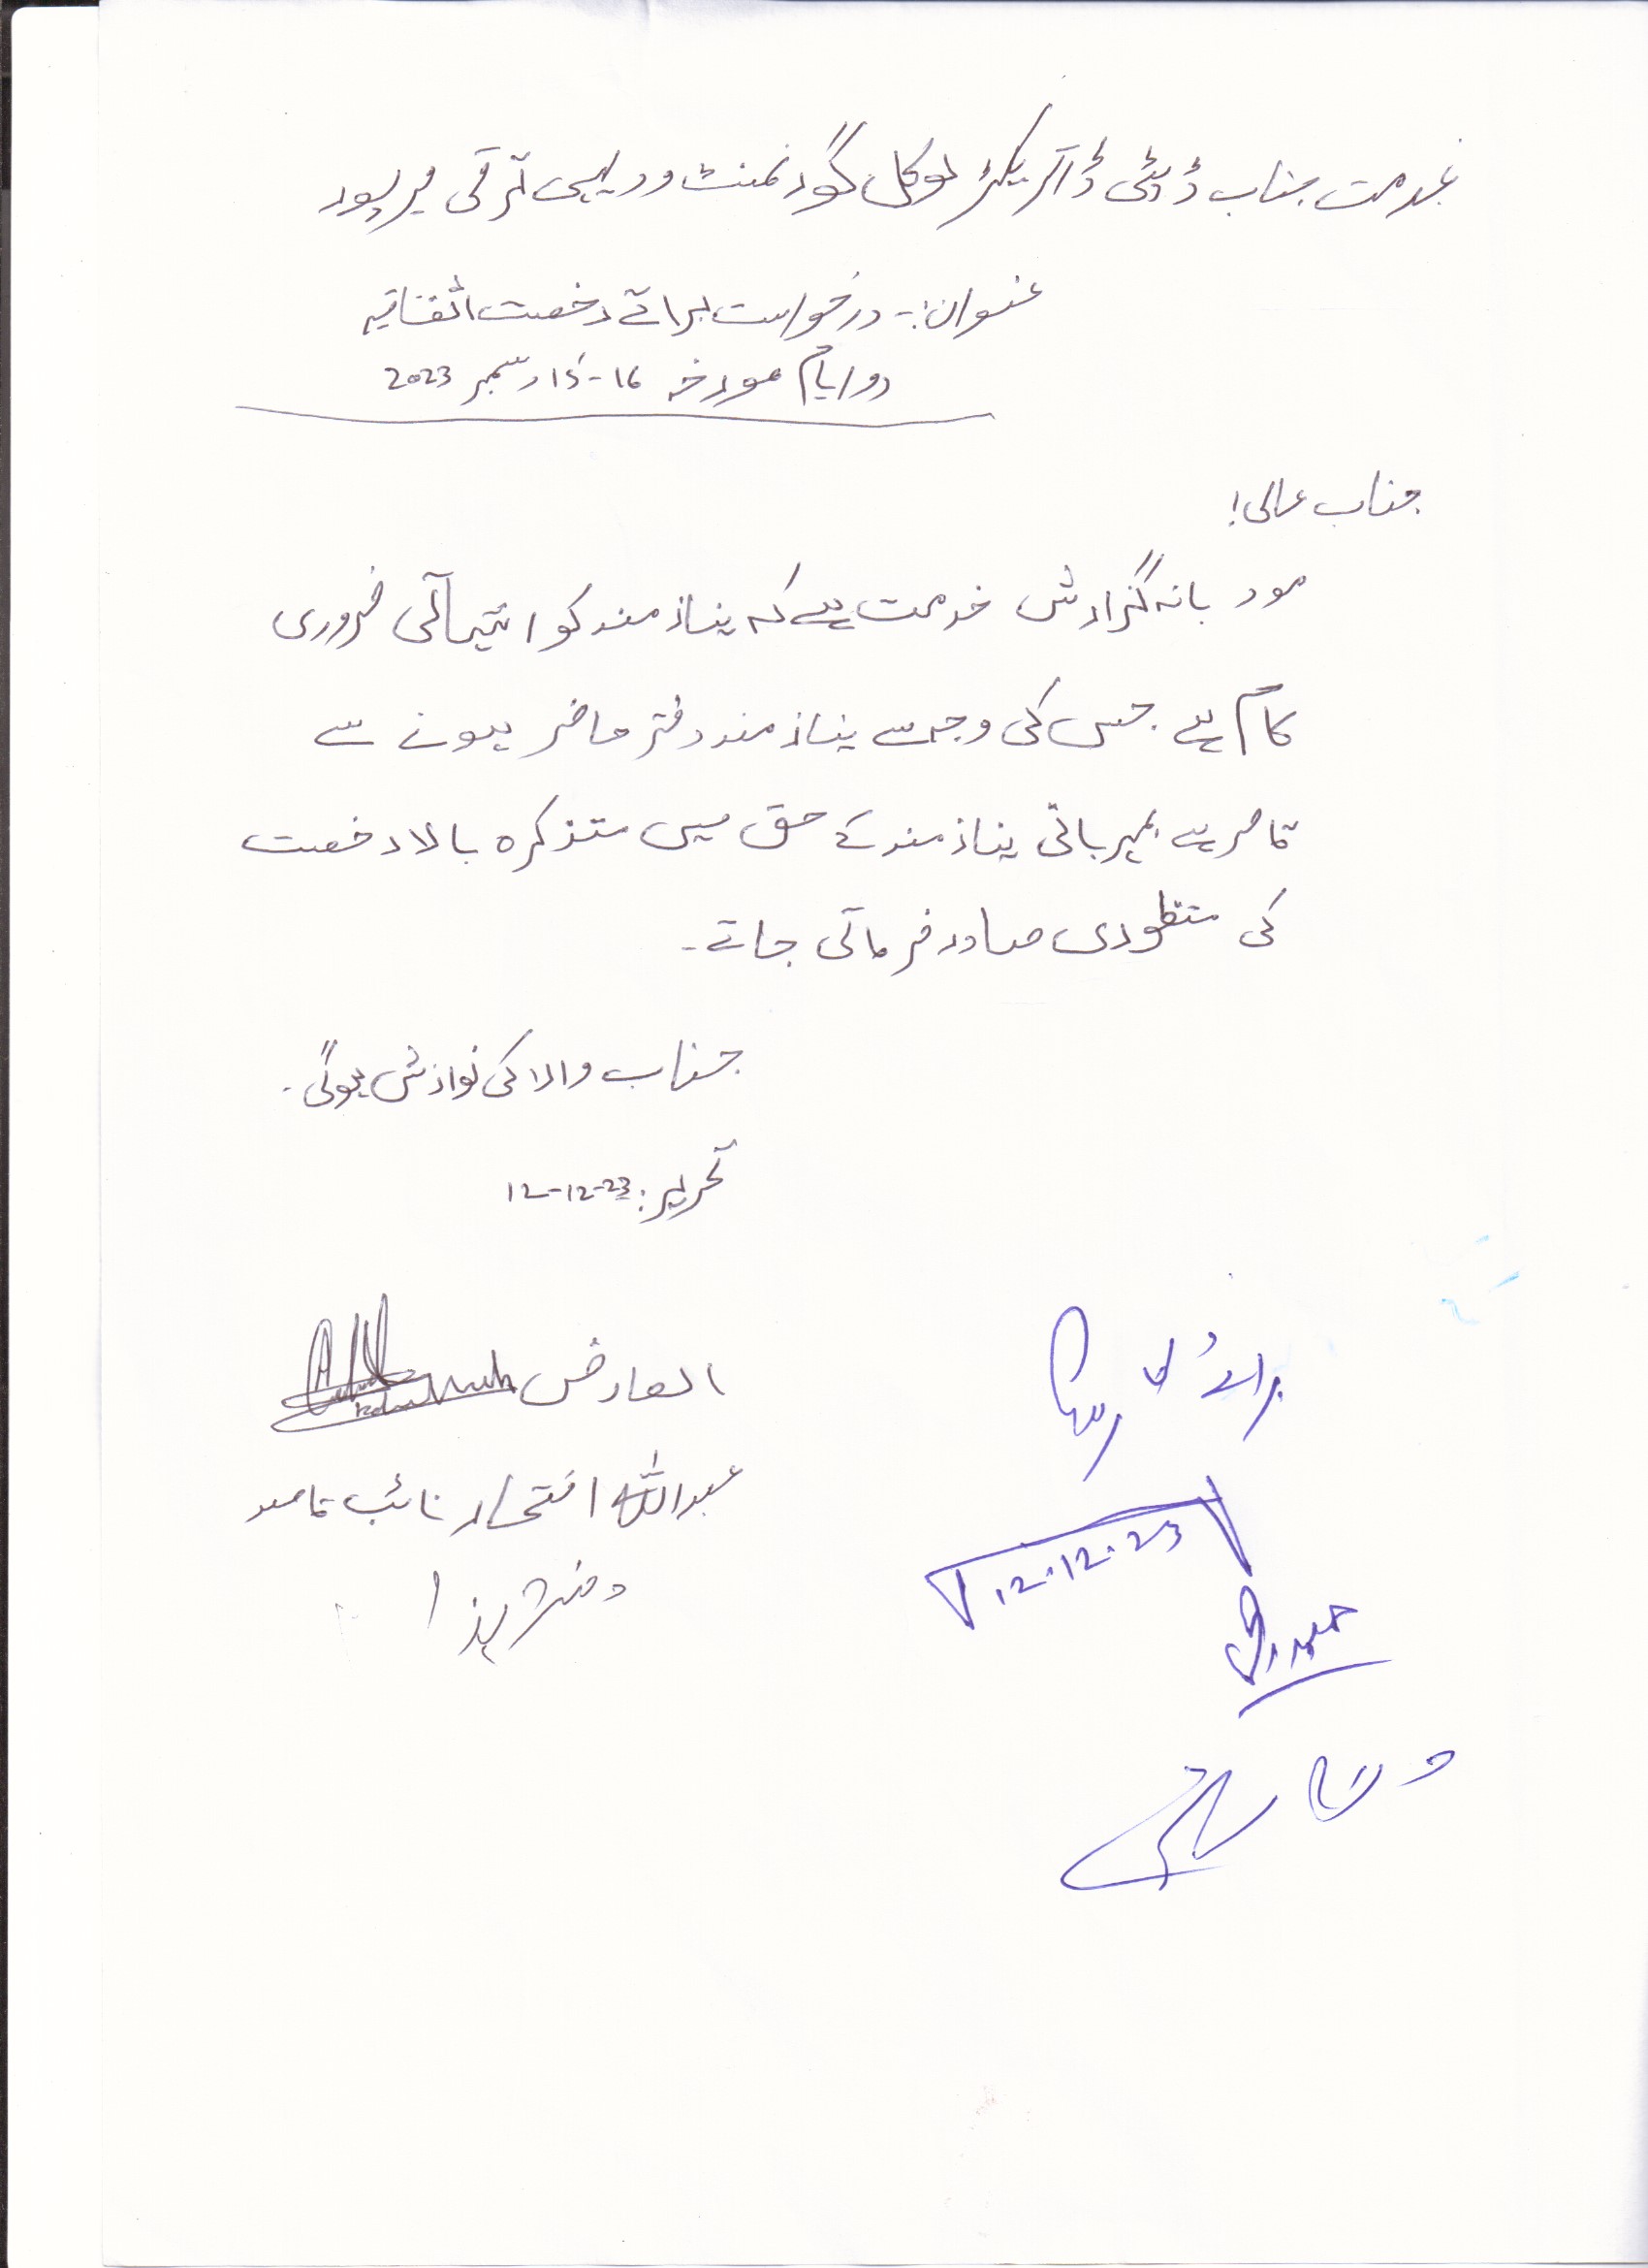 بخدمت جناب ڈپٹی ڈائریکٹر لوکل گورنمنٹ و دیہی ترقی میرپور
عنوان:- درخواست برائے رخصت اتفاقیہ
دو ایام مورخہ 16-15 دسمبر 2023
جناب عالی!
مودبانہ گزارش خدمت ہے کہ نیازمند کو انتہائی ضروری
کام ہے جس کی وجہ سے نیازمند دفتر حاضر ہونے سے
قاصر ہے بمہربانی نیازمند کے حق میں متذکرہ بالا رخصت
کی منظوری صادر فرمائی جائے۔
جناب والا کی نوازش ہوگی۔
تحریر: 12-12-23
العارض
عبداللہ افتخار نائب قاصد
دفتر ہذا
برائے
12.12.23